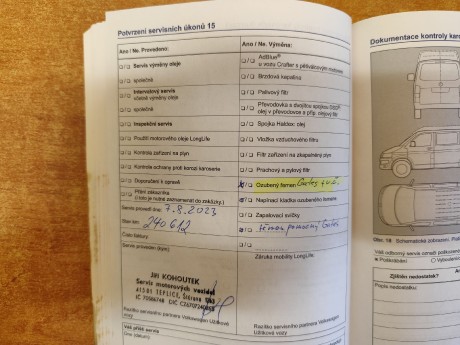 Potvrzení servisních úkonů 15
Ano / Ne. Provedeno:
Servis výměny oleje
společně
Intervalový servis
včetně výměny oleje
společně
Inspekční servis
Použití motorového oleje LongLife
Kontrola zařízení na plyn
Kontrola ochrany proti korozi karoserie
Doporučení k opravě
Přání zákazníka
(i to je nutné zaznamenat do zakázky.)
Servis proveden dne: 7.8.2023
Stav km: 240612
Číslo faktury:
Servis proveden (kým):
JIŘÍ KOHOUTEK
Servis motorových vozidel
415 01 TEPLICE,
Razítko servisního partnera Volkswagen
Užitkové vozy
Váš příští servis
Dne (datum)
Ano / Ne. Výměna:
AdBlue®
u vozu Crafter s pětiválcovým motorem
Brzdová kapalina
Palivový filtr
Převodovka s dvojitou spojkou DSG®
olej v převodovce a příp. olejový filtr
Spojka Haldex: olej
Vložka vzduchového filtru
Filtr zařízení na zkapalněný plyn
Prachový a pylový filtr
Ozubený řemen Gates
Napínací kladka ozubeného řemene
Zapalovací svíčky
řemen pomocný Gates
Záruka mobility LongLife
Razítko servisního partnera Volkswagen
Užitkové vozy
Dokumentace kontroly karos
Obr. 18 Schematické zobrazení.
Váš odborný servis označí poškození
Poškrábání
Zjištěn nedostatek?
Popis nedostatku: